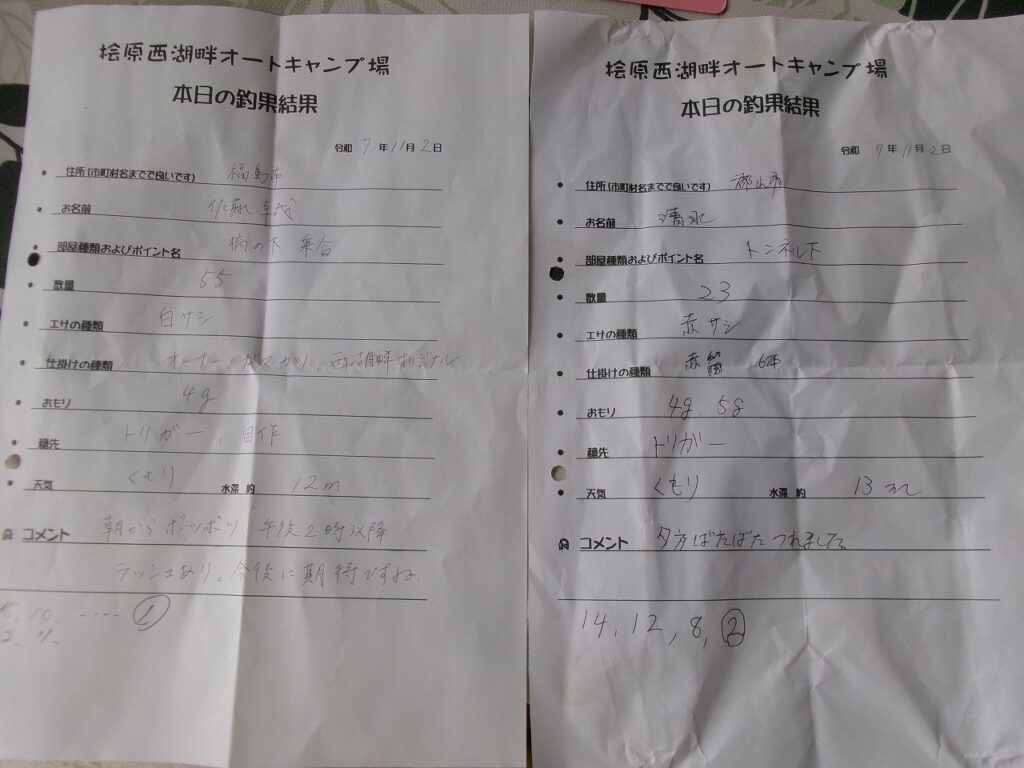 桧原西湖畔オートキャンプ場
本日の釣果結果
令和 7 年 11 月 2 日
住所(市町材名までで良いです) 福島市
お名前 佐藤
部屋種類およびポイント名 橋の下 乗合
数量 55
エサの種類 白サシ
仕掛けの種類 オーナー、がまかつ、西湖畔オリジナル
おもり 4g
穂先 トリガー、自作
天気 くもり 水深 約 12m
コメント 朝からポツポツ、午後2時以降
ラッシュあり。今後に期待ですね。
10. ---- ①
桧原西湖畔オートキャンプ場
本日の釣果結果
令和 7 年 11 月 2 日
住所(市町材名までで良いです) 郡山市
お名前 清水
部屋種類およびポイント名 トンネル下
数量 23
エサの種類 赤サシ
仕掛けの種類 赤 6本
おもり 4g. 5g
穂先 トリガー
天気 くもり 水深 約 13m
コメント 夕方ばたばたつれました。
14, 12, 8, ②